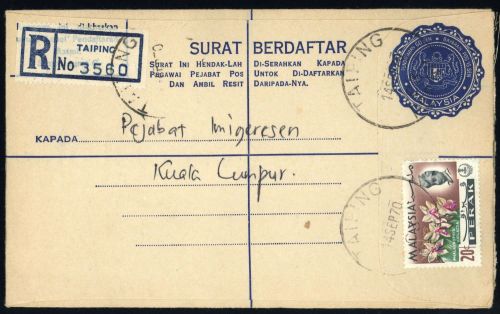 TAIPING
R No 3560
SURAT BERDAFTAR
SURAT INI HENDAK-LAH
PEGAWAI PEJABAT POS
DAN AMBIL RESIT
DI-SERAHKAN KAPADA
UNTOK DI-DAFTARKAN
DARIPADA-NYA.
MALAYSIA
TAIPING
TAIPING
14SEP70
KAPADA
Pejabat Imigeresen
Kuala Lumpur.
TAIPING
14SEP70
MALAYSIA
PERAK
20c